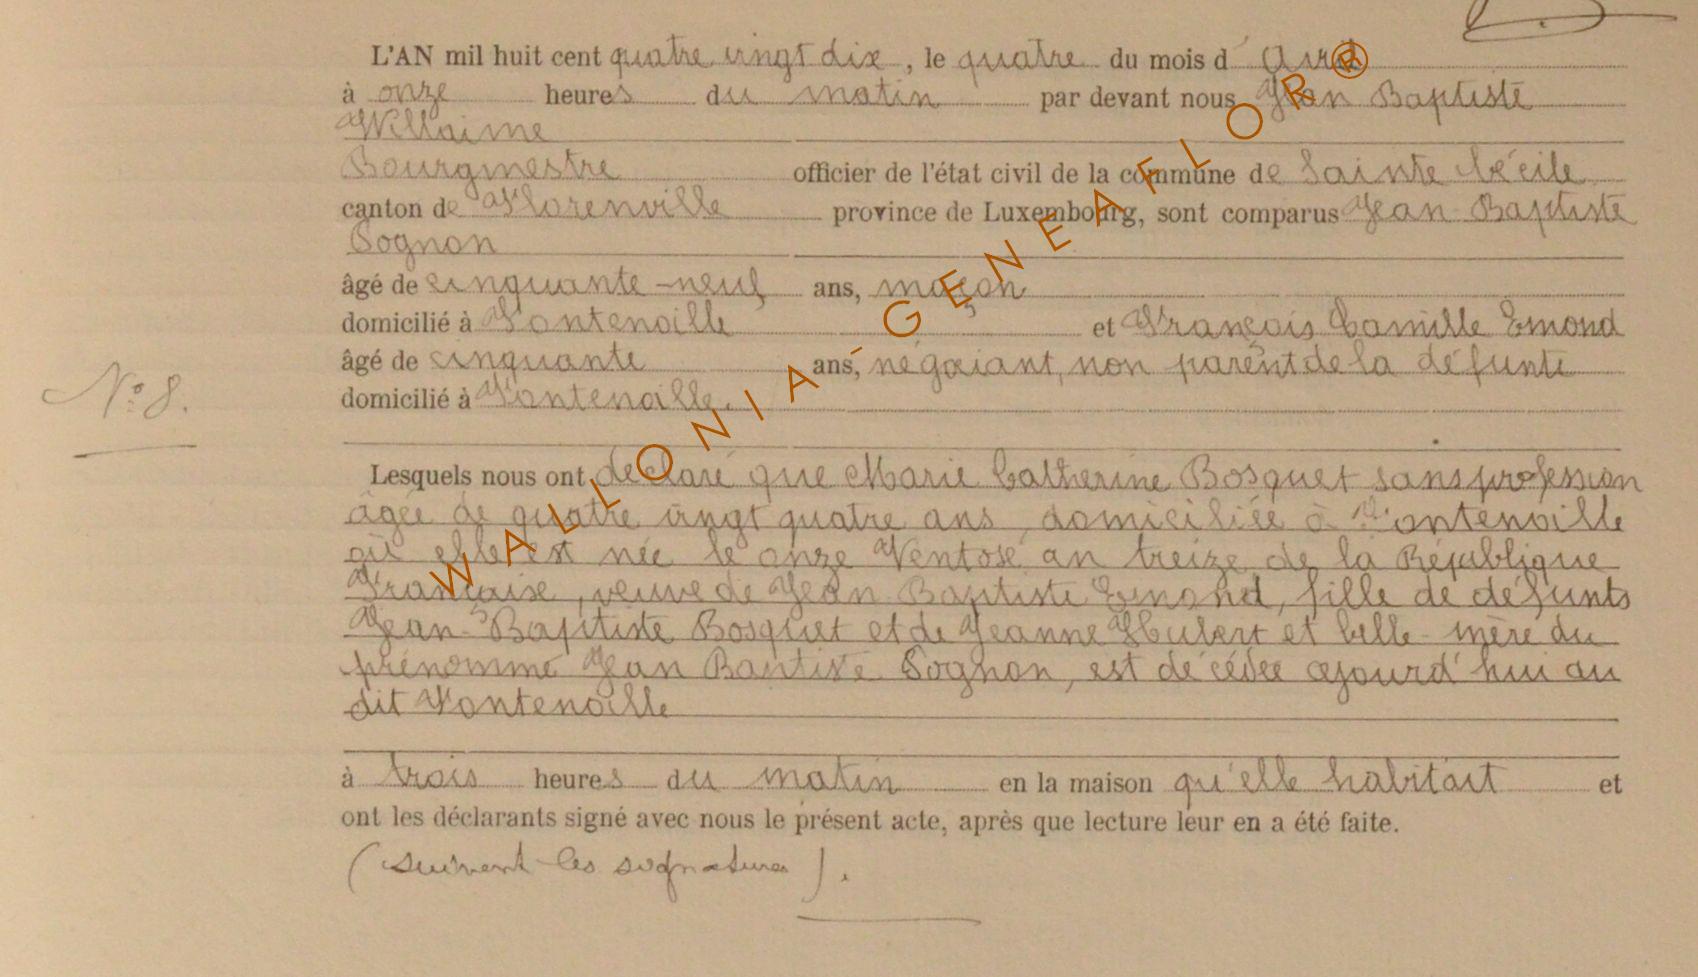 L'AN mil huit cent quatre vingt dix, le quatre du mois d'Avril
à onze heures du matin par devant nous Jean Baptiste
Willaime
Bourgmestre officier de l'état civil de la commune de Sainte Cécile
canton de Florenville province de Luxembourg, sont comparus Jean Baptiste
Sognon
âgé de cinquante-neuf ans, maçon
domicilié à Fontenoille et François Camille Emond
âgé de cinquante ans, négociant, non parent de la défunte
N° 8.
domicilié à Fontenoille.
Lesquels nous ont déclaré que Marie Catherine Bosquet sans profession
âgée de quatre vingt quatre ans, domiciliée à Fontenoille
où elle est née le onze Ventose an treize de la République
Française, veuve de Jean Baptiste Emond, fille de défunts
Jean-Baptiste Bosquet et de Jeanne Hubert et belle-mère du
prénommé Jean Baptiste Sognon, est décédée cejourd'hui au
dit Fontenoille
à trois heures du matin en la maison qu'elle habitait et
ont les déclarants signé avec nous le présent acte, après que lecture leur en a été faite.
(suivent les signatures).
WALLONIA-GENEAFLOR®